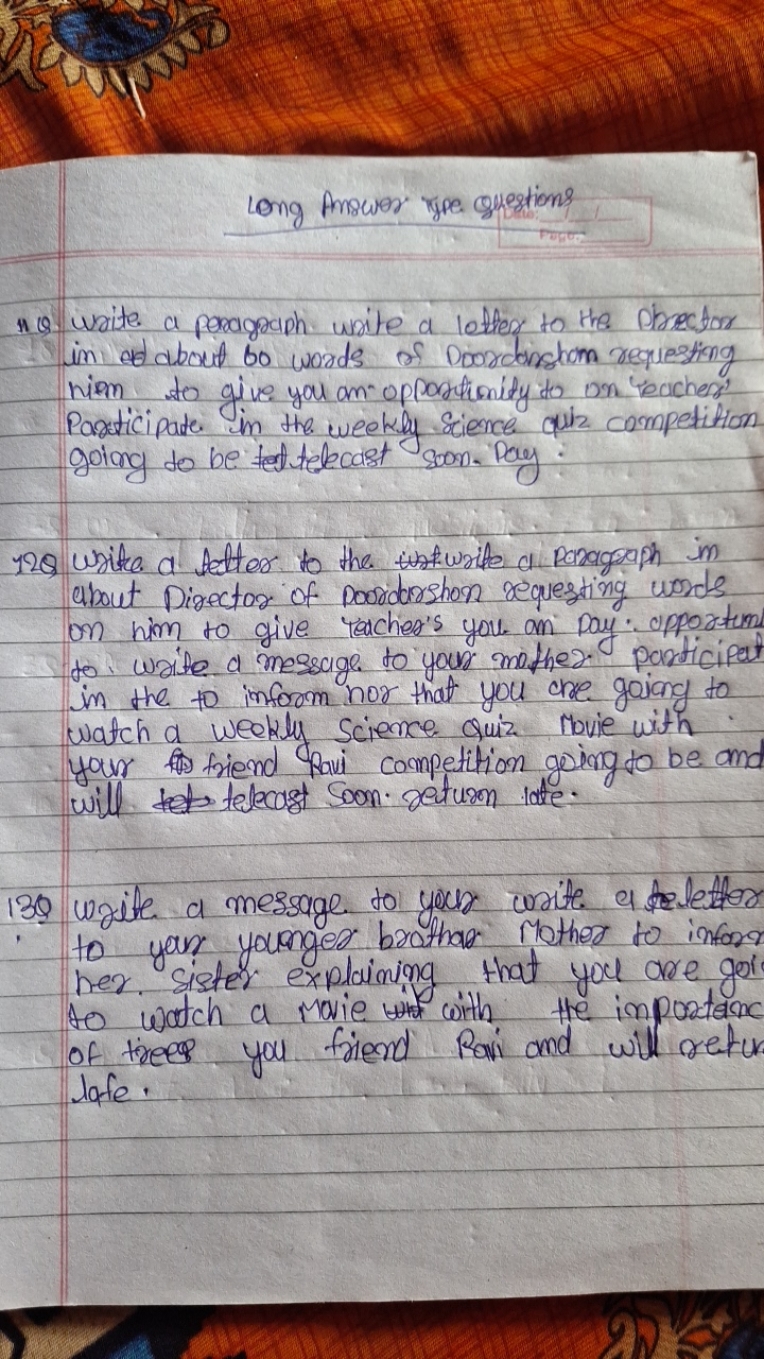 Long Answer Type Questions
Date:
Page:
11Q write a paragraph write a letter to the Director
in about 60 words of Doordarshan requesting
him to give you an opportunity to on Teachers'
Participate in the weekly Science quiz competition
going to be telecast soon. Day.
12Q write a letter to the write a paragraph in
about Director of Doordarshan requesting words
on him to give Teacher's you an Day. opportuni
to write a message to your mother participat
in the to inform her that you are going to
watch a weekly Science Quiz Movie with
your friend Ravi competition going to be and
will telecast soon. return late.
13Q write a message to your write a letter
to your younger brother Mother to inform
her. Sister explaining that you are goi
to watch a Movie with the importanc
of trees you friend Ravi and will retur
late.